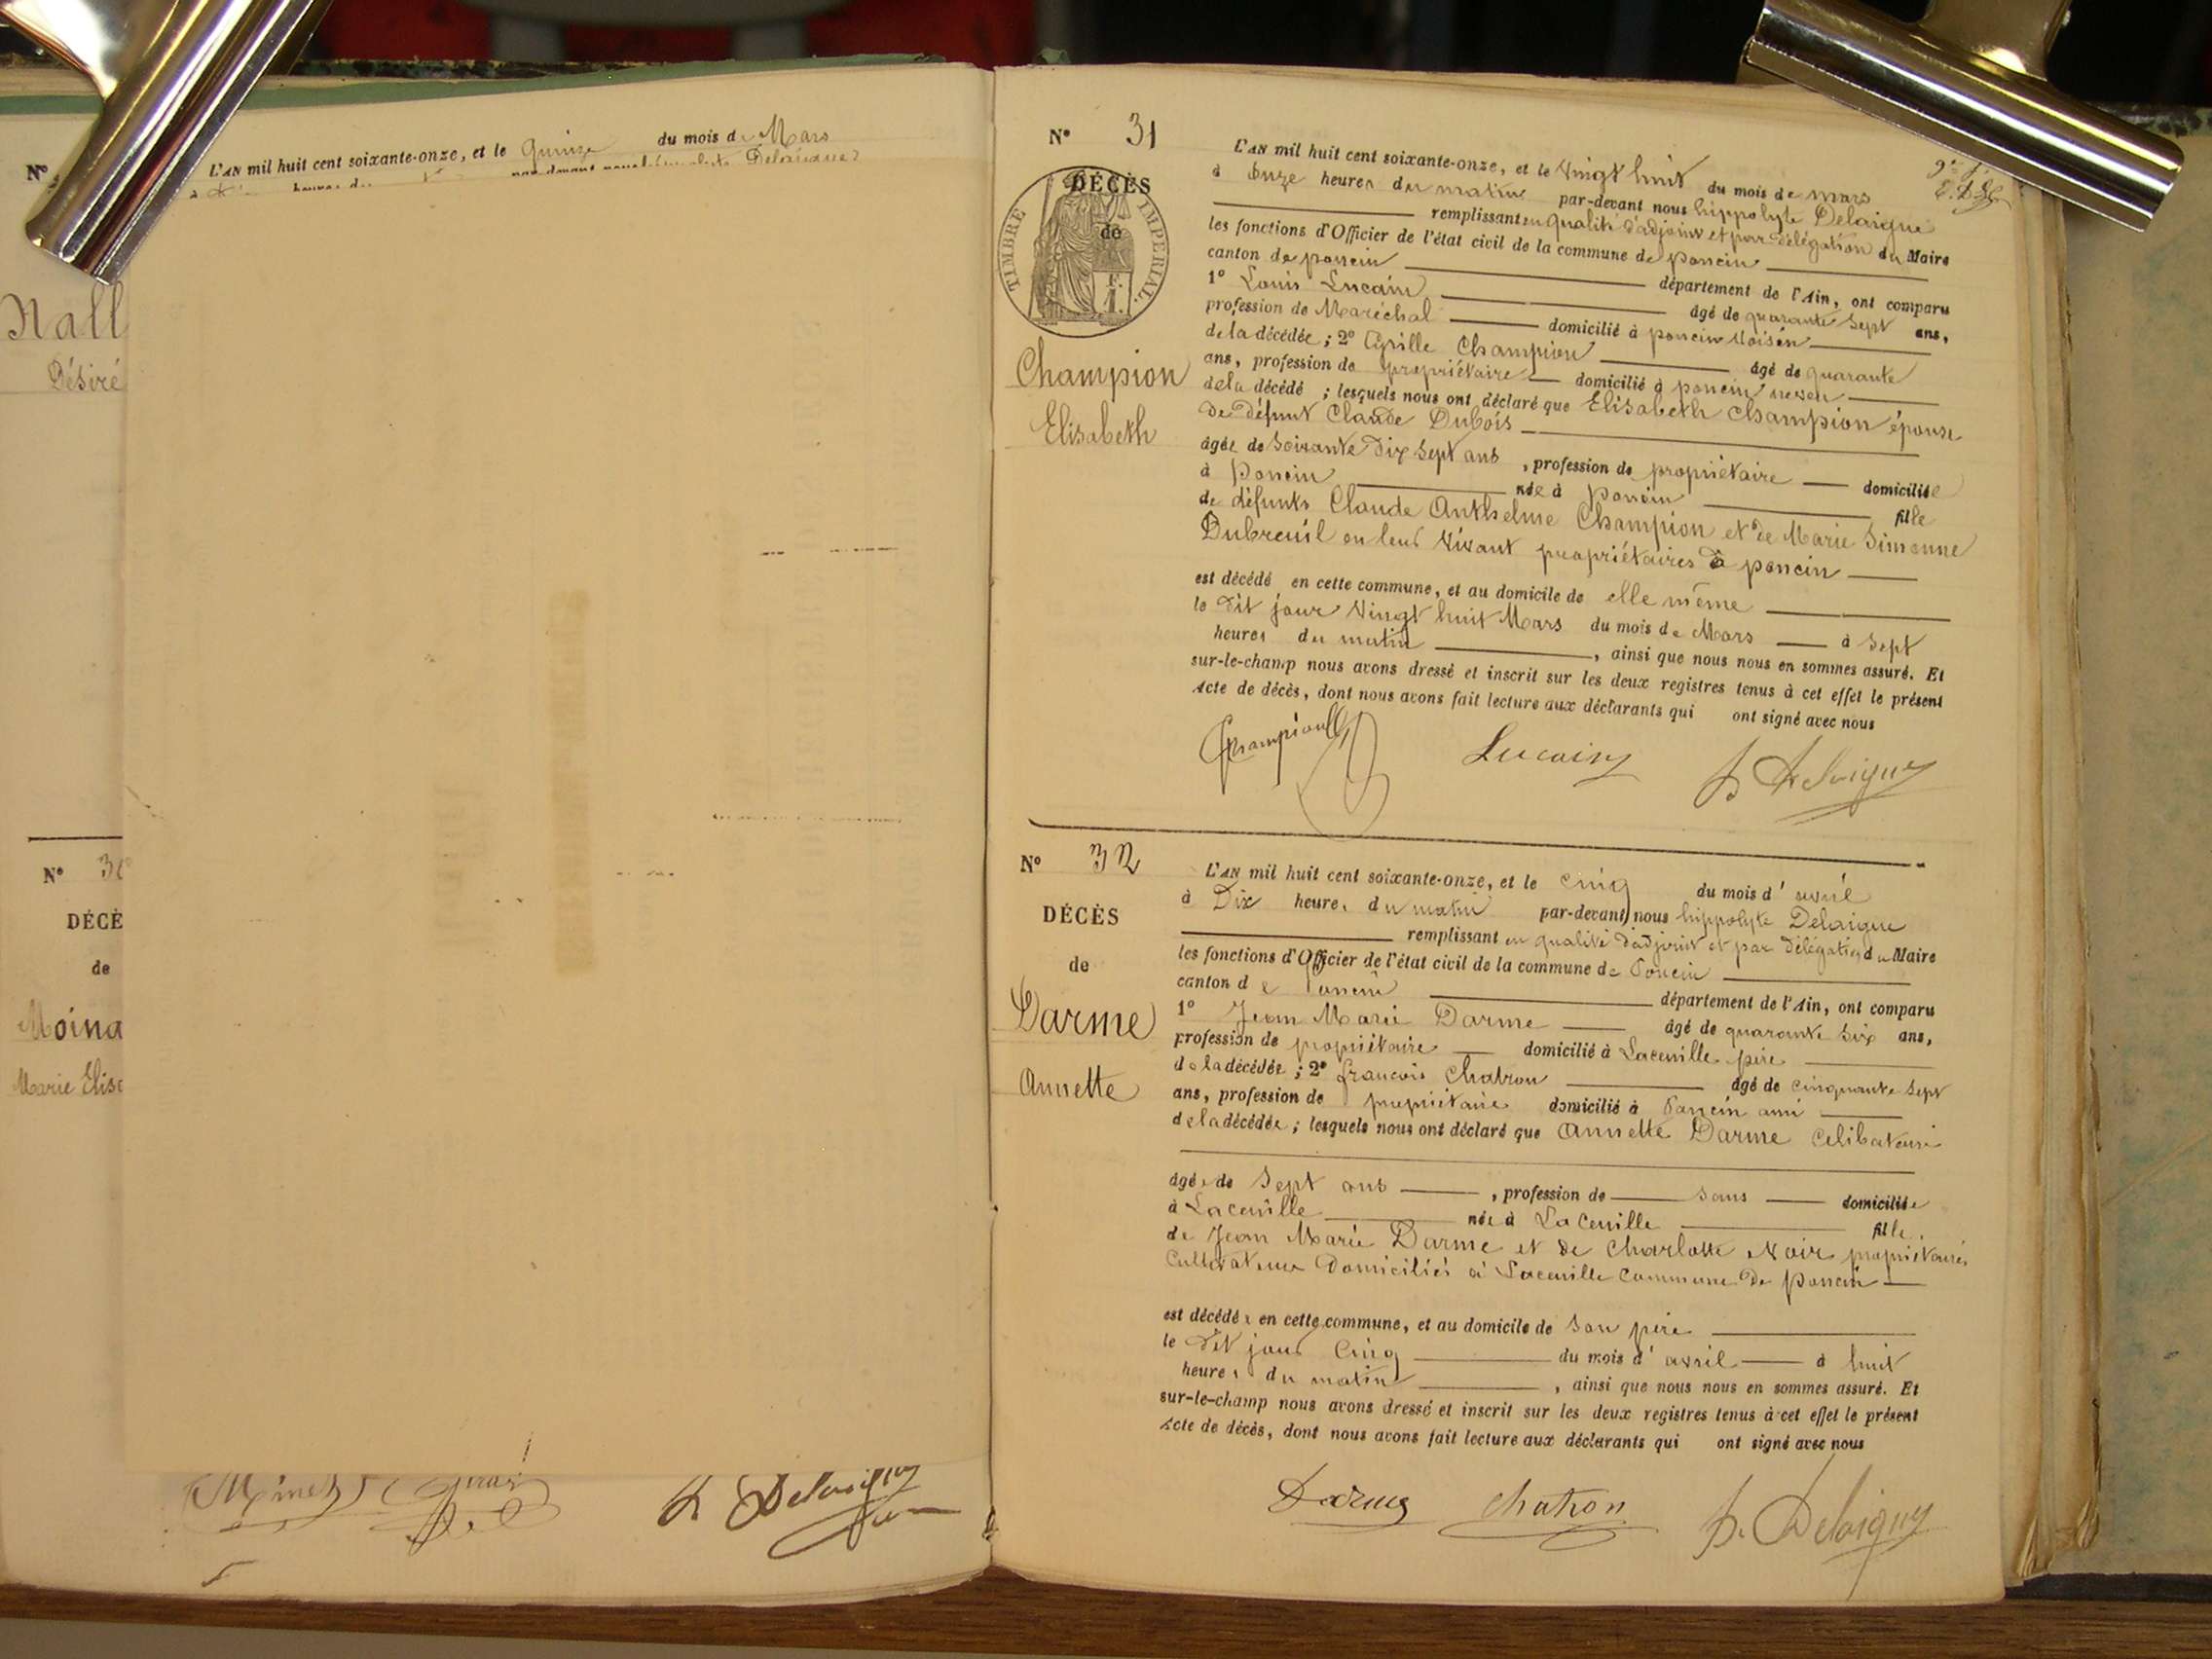 N°
L'AN mil huit cent soixante-onze, et le quinze du mois de Mars
Nall
Désiré
N° 30
DÉCÈ
de
Moina
Marie Elise
N° 31
TIMBRE IMPÉRIAL
DÉCÈS
de
1 F.
Champion
Elisabeth
L'AN mil huit cent soixante-onze, et le Vingt huit du mois de mars
à Onze heures du matin par-devant nous hippolyte Delaigue
remplissant en qualité d'adjoint et par délégation du Maire
les fonctions d'Officier de l'état civil de la commune de poncin
canton de poncin département de l'Ain, ont comparu
1° Louis Lucain âgé de quarante sept ans,
profession de Maréchal domicilié à poncin Voisin
de la décédée ; 2° Cyrille Champion âgé de quarante
ans, profession de propriétaire domicilié à poncin neveu
de la décédé ; lesquels nous ont déclaré que Elisabeth Champion épouse
de défunt Claude Dubois
âgée de Soixante Dix Sept ans , profession de propriétaire domicilié
à Poncin née à Poncin fille
de défunts Claude Anthelme Champion et de Marie Simonne
Dubreuil en leur Vivant propriétaires à poncin
est décédé en cette commune, et au domicile de elle même
le dit jour Vingt huit Mars du mois de Mars à Sept
heures du matin , ainsi que nous nous en sommes assuré. Et
sur-le-champ nous avons dressé et inscrit sur les deux registres tenus à cet effet le présent
Acte de décès, dont nous avons fait lecture aux déclarants qui ont signé avec nous
Champion Lucain h Delaigue
N° 32
DÉCÈS
de
Darme
Annette
L'AN mil huit cent soixante-onze, et le cinq du mois d' avril
à Dix heures du matin par-devant nous hippolyte Delaigue
remplissant en qualité d'adjoint et par délégation du Maire
les fonctions d'Officier de l'état civil de la commune de Poncin
canton de Poncin département de l'Ain, ont comparu
1° Jean Marie Darme âgé de quarante six ans,
profession de propriétaire domicilié à Lacueille père
de la décédée ; 2° francois Chatron âgé de cinquante Sept
ans, profession de propriétaire domicilié à Poncin ami
de la décédée ; lesquels nous ont déclaré que Annette Darme Celibataire
âgée de Sept ans , profession de Sans domiciliée
à Lacueille née à La Cueille fille
de Jean Marie Darme et de Charlotte Noir propriétaires
Cultivateurs Domiciliés à Lacueille Commune de Poncin
est décédée en cette commune, et au domicile de Son père
le dit jour Cinq du mois d' avril à huit
heures du matin , ainsi que nous nous en sommes assuré. Et
sur-le-champ nous avons dressé et inscrit sur les deux registres tenus à cet effet le présent
Acte de décès, dont nous avons fait lecture aux déclarants qui ont signé avec nous
Darme Chatron h. Delaigue
h Delaigue